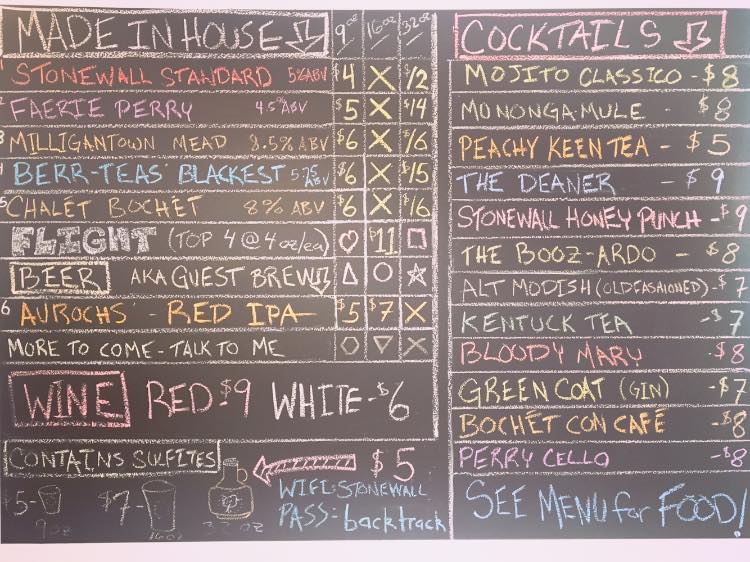 MADE IN HOUSE 9oz 16oz 32oz
STONEWALL STANDARD 5%ABV $4 X $12
2 FAERIE PERRY 4.5%ABV $5 X $14
3 MILLIGANTOWN MEAD 8.5% ABV $6 X $16
4 BERR-TEAS BLACKEST 5.75% ABV $6 X $15
5 CHALET BOCHET 8% ABV $6 X $16
FLIGHT (TOP 4 @ 4oz/ea) $11
BEER AKA GUEST BREW
6 AUROCHS - RED IPA $5 $7 X
MORE TO COME - TALK TO ME
WINE RED $9 WHITE - $6
CONTAINS SULFITES $5
5- $7-
9oz 16oz 32 oz
WIFI: STONEWALL
PASS: backtrack
COCKTAILS
MOJITO CLASSICO - $8
MONONGAMULE - $8
PEACHY KEEN TEA - $5
THE DEANER - $9
STONEWALL HONEY PUNCH - $9
THE BOOZ-ARDO - $8
ALT MODISH (OLDFASHIONED) - $7
KENTUCK TEA - $7
BLOODY MARY - $8
GREEN COAT (GIN) - $7
BOCHÉT CON CAFÉ - $8
PERRY CELLO - $8
SEE MENU for FOOD!